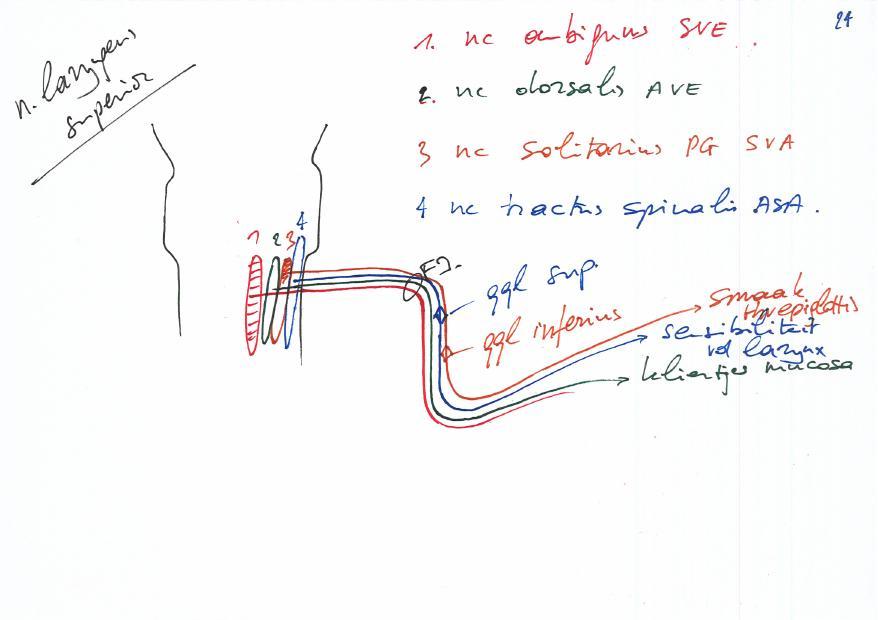 24
n. laryngeus
superior
1. nc ambiguus SVE.
2. nc dorsalis AVE
3 nc solitarius PG SVA
4 nc tractus spinalis ASA.
1 2 3 4
FJ.
ggl sup.
ggl inferius
smaak
thv epiglottis
sensibiliteit
vd larynx
kliertjes mucosa